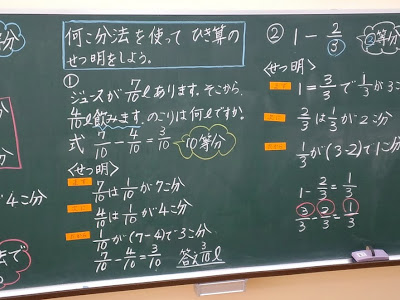 等分
何こ分法を使って ひき算の
せつ明をしよう。
①
ジュースが 7/10 ℓ あります。そこから、
4/10 ℓ 飲みます。のこりは何ℓですか。
式 7/10 - 4/10 = 3/10 10等分
<せつ明>
7/10 は 1/10 が 7こ分
4/10 は 1/10 が 4こ分
1/10 が (7-4) で 3こ分
7/10 - 4/10 = 3/10 答え 3/10 ℓ
が4こ分
法で
② 1 - 2/3 ③等分
<せつ明>
1 = 3/3 で 1/3 が 3こ
2/3 は 1/3 が 2こ分
1/3 が (3-2) で 1こ分
1 - 2/3 = 1/3
3/3 - 2/3 = 1/3